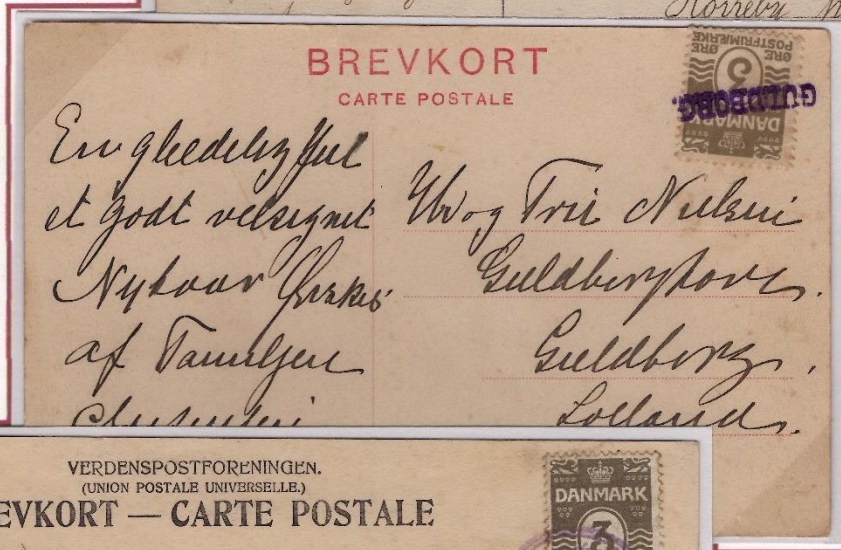 BREVKORT
CARTE POSTALE
ØRE POSTFRIMÆRKE ØRE
3
DANMARK
GULDBORG.
En glædelig Jul
et godt velsignet
Nytaar Ønskes
af Familjen
Hr og Fru Nielsen
Guldborg
Lolland.
VERDENSPOSTFORENINGEN.
(UNION POSTALE UNIVERSELLE.)
EVKORT — CARTE POSTALE
DANMARK
3